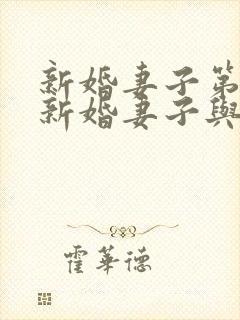 新婚妻子第
新婚妻子與
霍華德